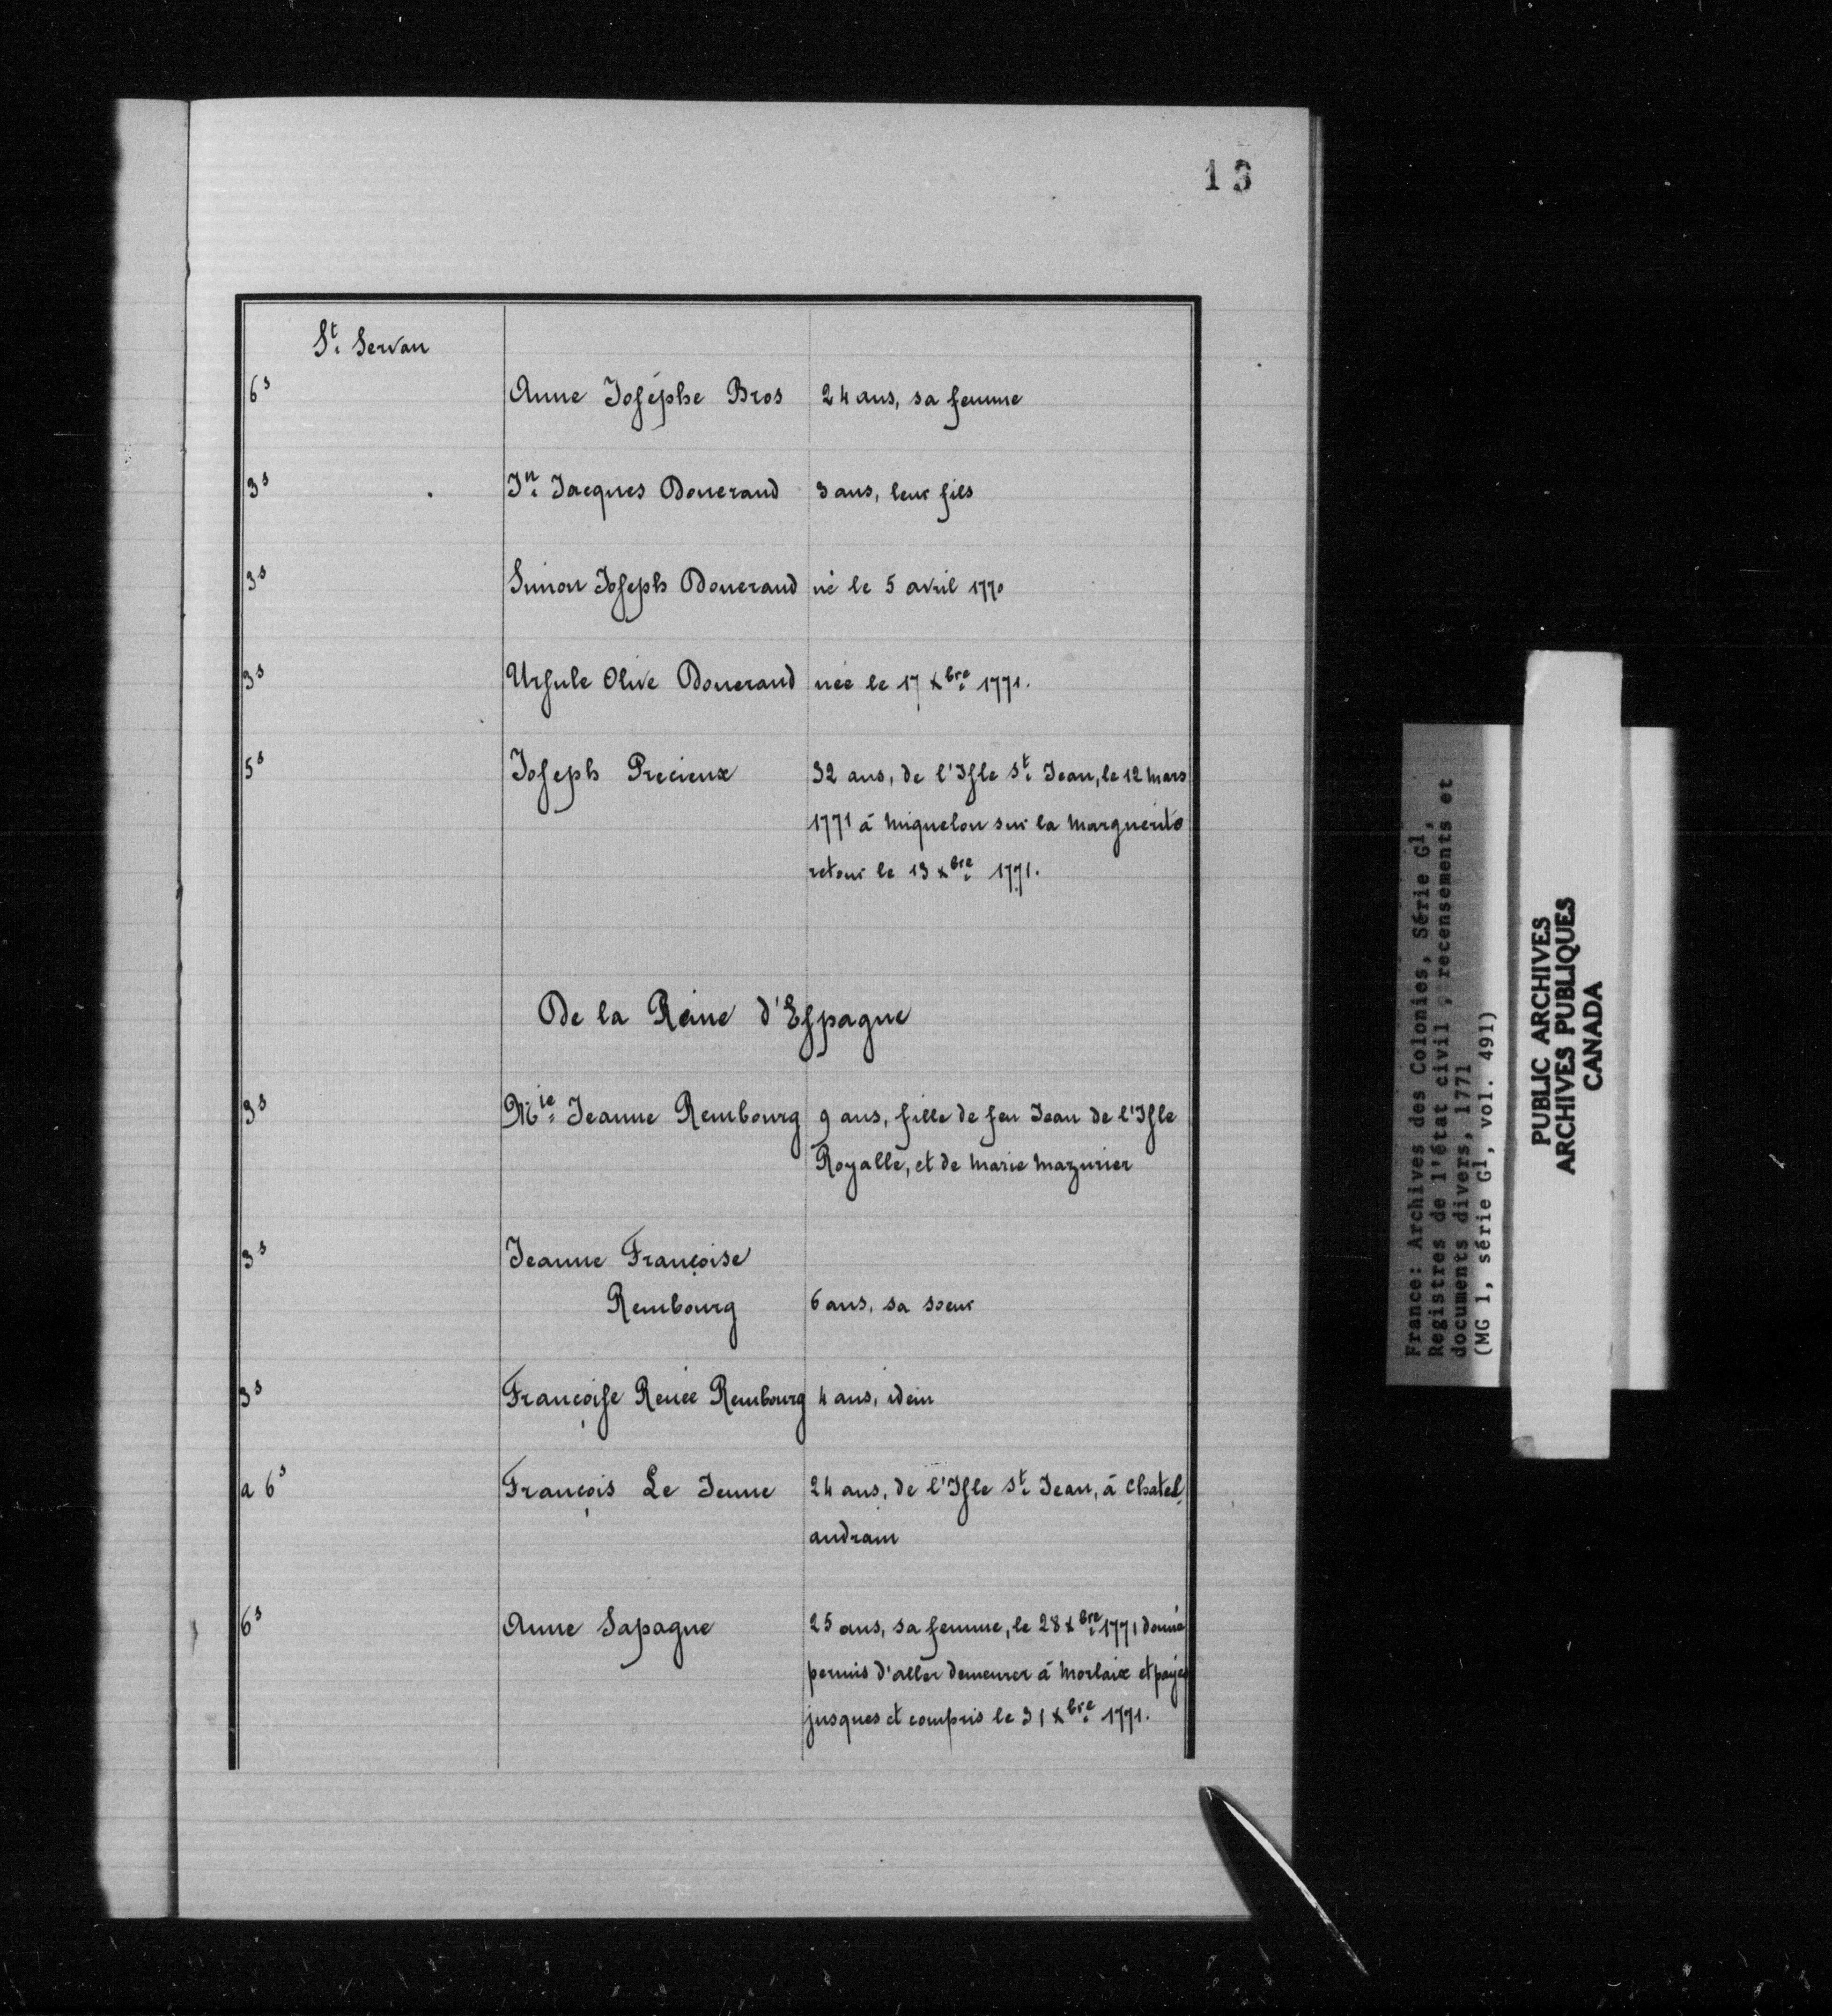 13
St. Servan
6s Anne Joséphe Bros 24 ans, sa femme
3s Jn. Jacques Douerand 3 ans, leur fils
3s Simon Joseph Douerand né le 5 avril 1770
3s Ursule Olive Douerand née le 17 xbre 1771.
5s Joseph Precieux 32 ans, de l'Isle St. Jean, le 12 mars
1771 à Miquelon sur la Marguerite
retour le 13 xbre 1771.
De la Reine d'Espagne
3s Mie. Jeanne Rembourg 9 ans, fille de feu Jean de l'Isle
Royalle, et de Marie Mazurier
3s Jeanne Françoise
Rembourg 6 ans, sa soeur
3s Françoise Renée Rembourg 4 ans, idem
a 6s François Le Jeune 24 ans, de l'Isle St. Jean, à Chatel
andrain
6s Anne Sapagne 25 ans, sa femme, le 28 xbre 1771 donné
permis d'aller demeurer à Morlaix et payé
jusques et compris le 31 xbre 1771.
France: Archives des Colonies, Série G1,
Registres de l'état civil, recensements et
documents divers, 1771
(MG 1, série G1, vol. 491)
PUBLIC ARCHIVES
ARCHIVES PUBLIQUES
CANADA